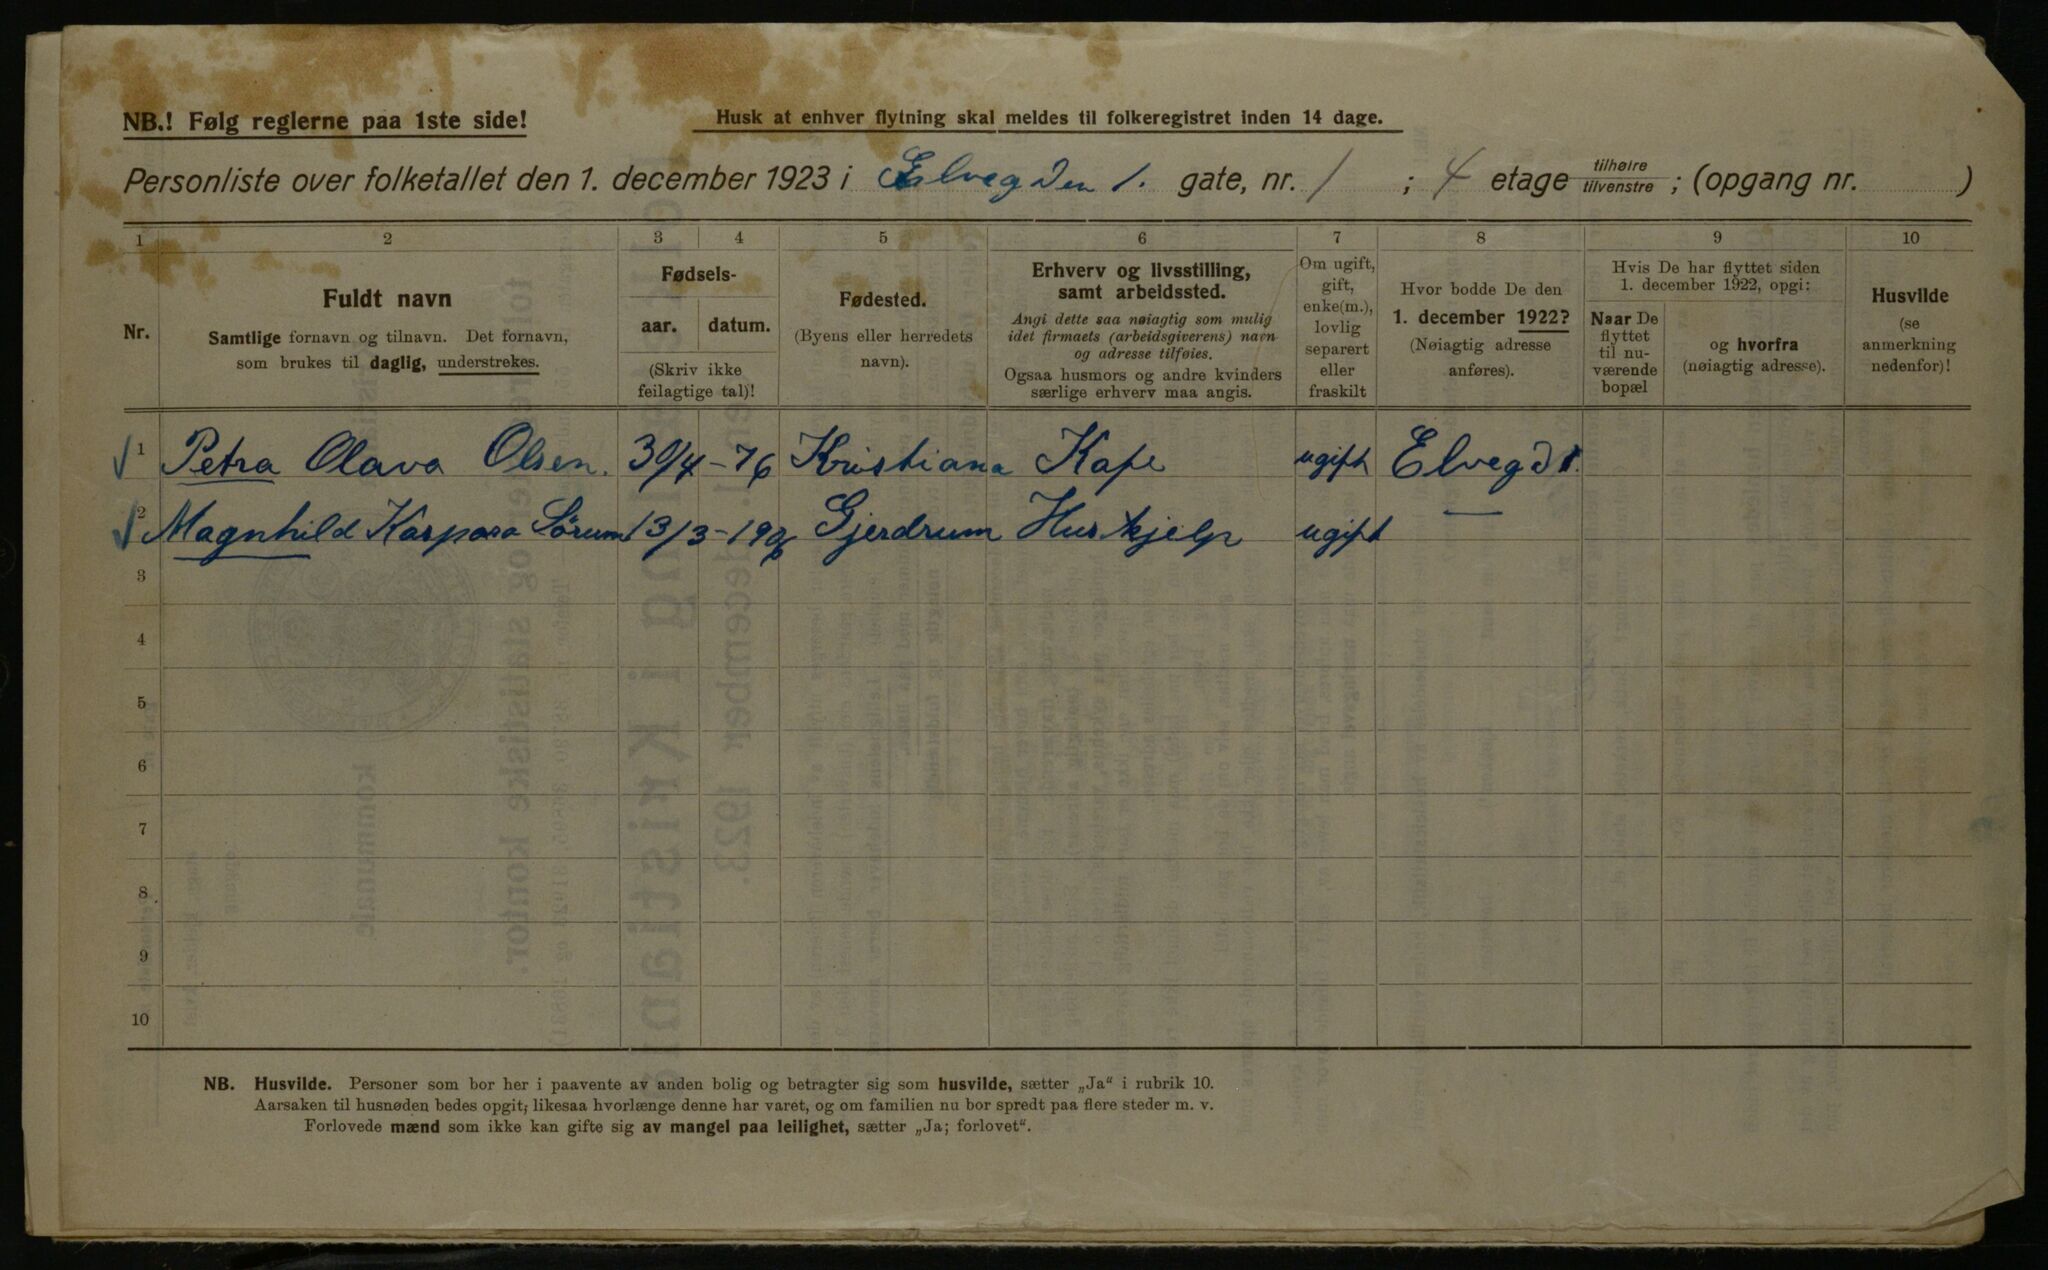 NB.! Følg reglerne paa 1ste side!
Husk at enhver flytning skal meldes til folkeregistret inden 14 dage.
Personliste over folketallet den 1. december 1923 i Elvegden 1. gate, nr. 1 ; 4 etage tilhøire tilvenstre ; (opgang nr. )
1 2 3 4 5 6 7 8 9 10
Nr.
Fuldt navn
Samtlige fornavn og tilnavn. Det fornavn,
som brukes til daglig, understrekes.
Fødsels-
aar. datum.
(Skriv ikke
feilagtige tal)!
Fødested.
(Byens eller herredets
navn).
Erhverv og livsstilling,
samt arbeidssted.
Angi dette saa nøiagtig som mulig
idet firmaets (arbeidsgiverens) navn
og adresse tilføies.
Ogsaa husmors og andre kvinders
særlige erhverv maa angis.
Om ugift,
gift,
enke(m.),
lovlig
separert
eller
fraskilt
Hvor bodde De den
1. december 1922?
(Nøiagtig adresse
anføres).
Hvis De har flyttet siden
1. december 1922, opgi:
Naar De
flyttet
til nu-
værende
bopæl
og hvorfra
(nøiagtig adresse).
Husvilde
(se
anmerkning
nedenfor)!
1 Petra Olava Olsen. 30/4-76 Kristiana Kafe ugift Elvegd 1.
2 Magnhild Kaspara Sörum 13/3-1906 Gjerdrum Hushjelp ugift —
3
4
5
6
7
8
9
10
NB. Husvilde. Personer som bor her i paavente av anden bolig og betragter sig som husvilde, sætter „Ja“ i rubrik 10.
Aarsaken til husnøden bedes opgit; likesaa hvorlænge denne har varet, og om familien nu bor spredt paa flere steder m. v.
Forlovede mænd som ikke kan gifte sig av mangel paa leilighet, sætter „Ja; forlovet“.